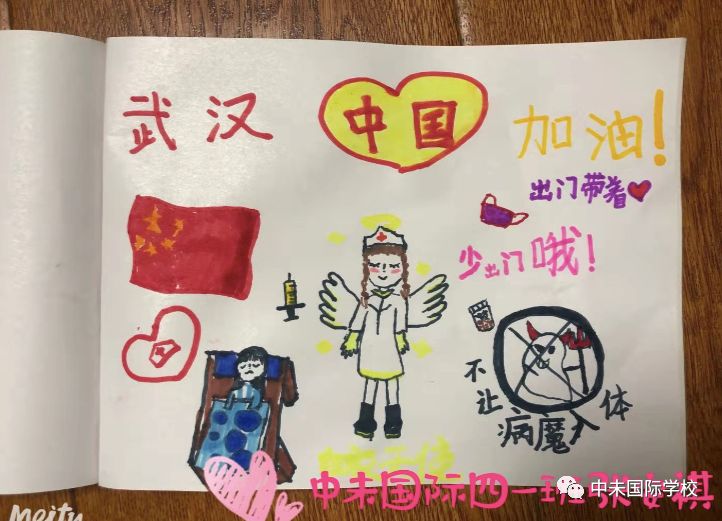 武汉 中国 加油!
出门带着❤
少出门哦!
不让病魔入体
中未国际四一班
中未国际学校
Meitu